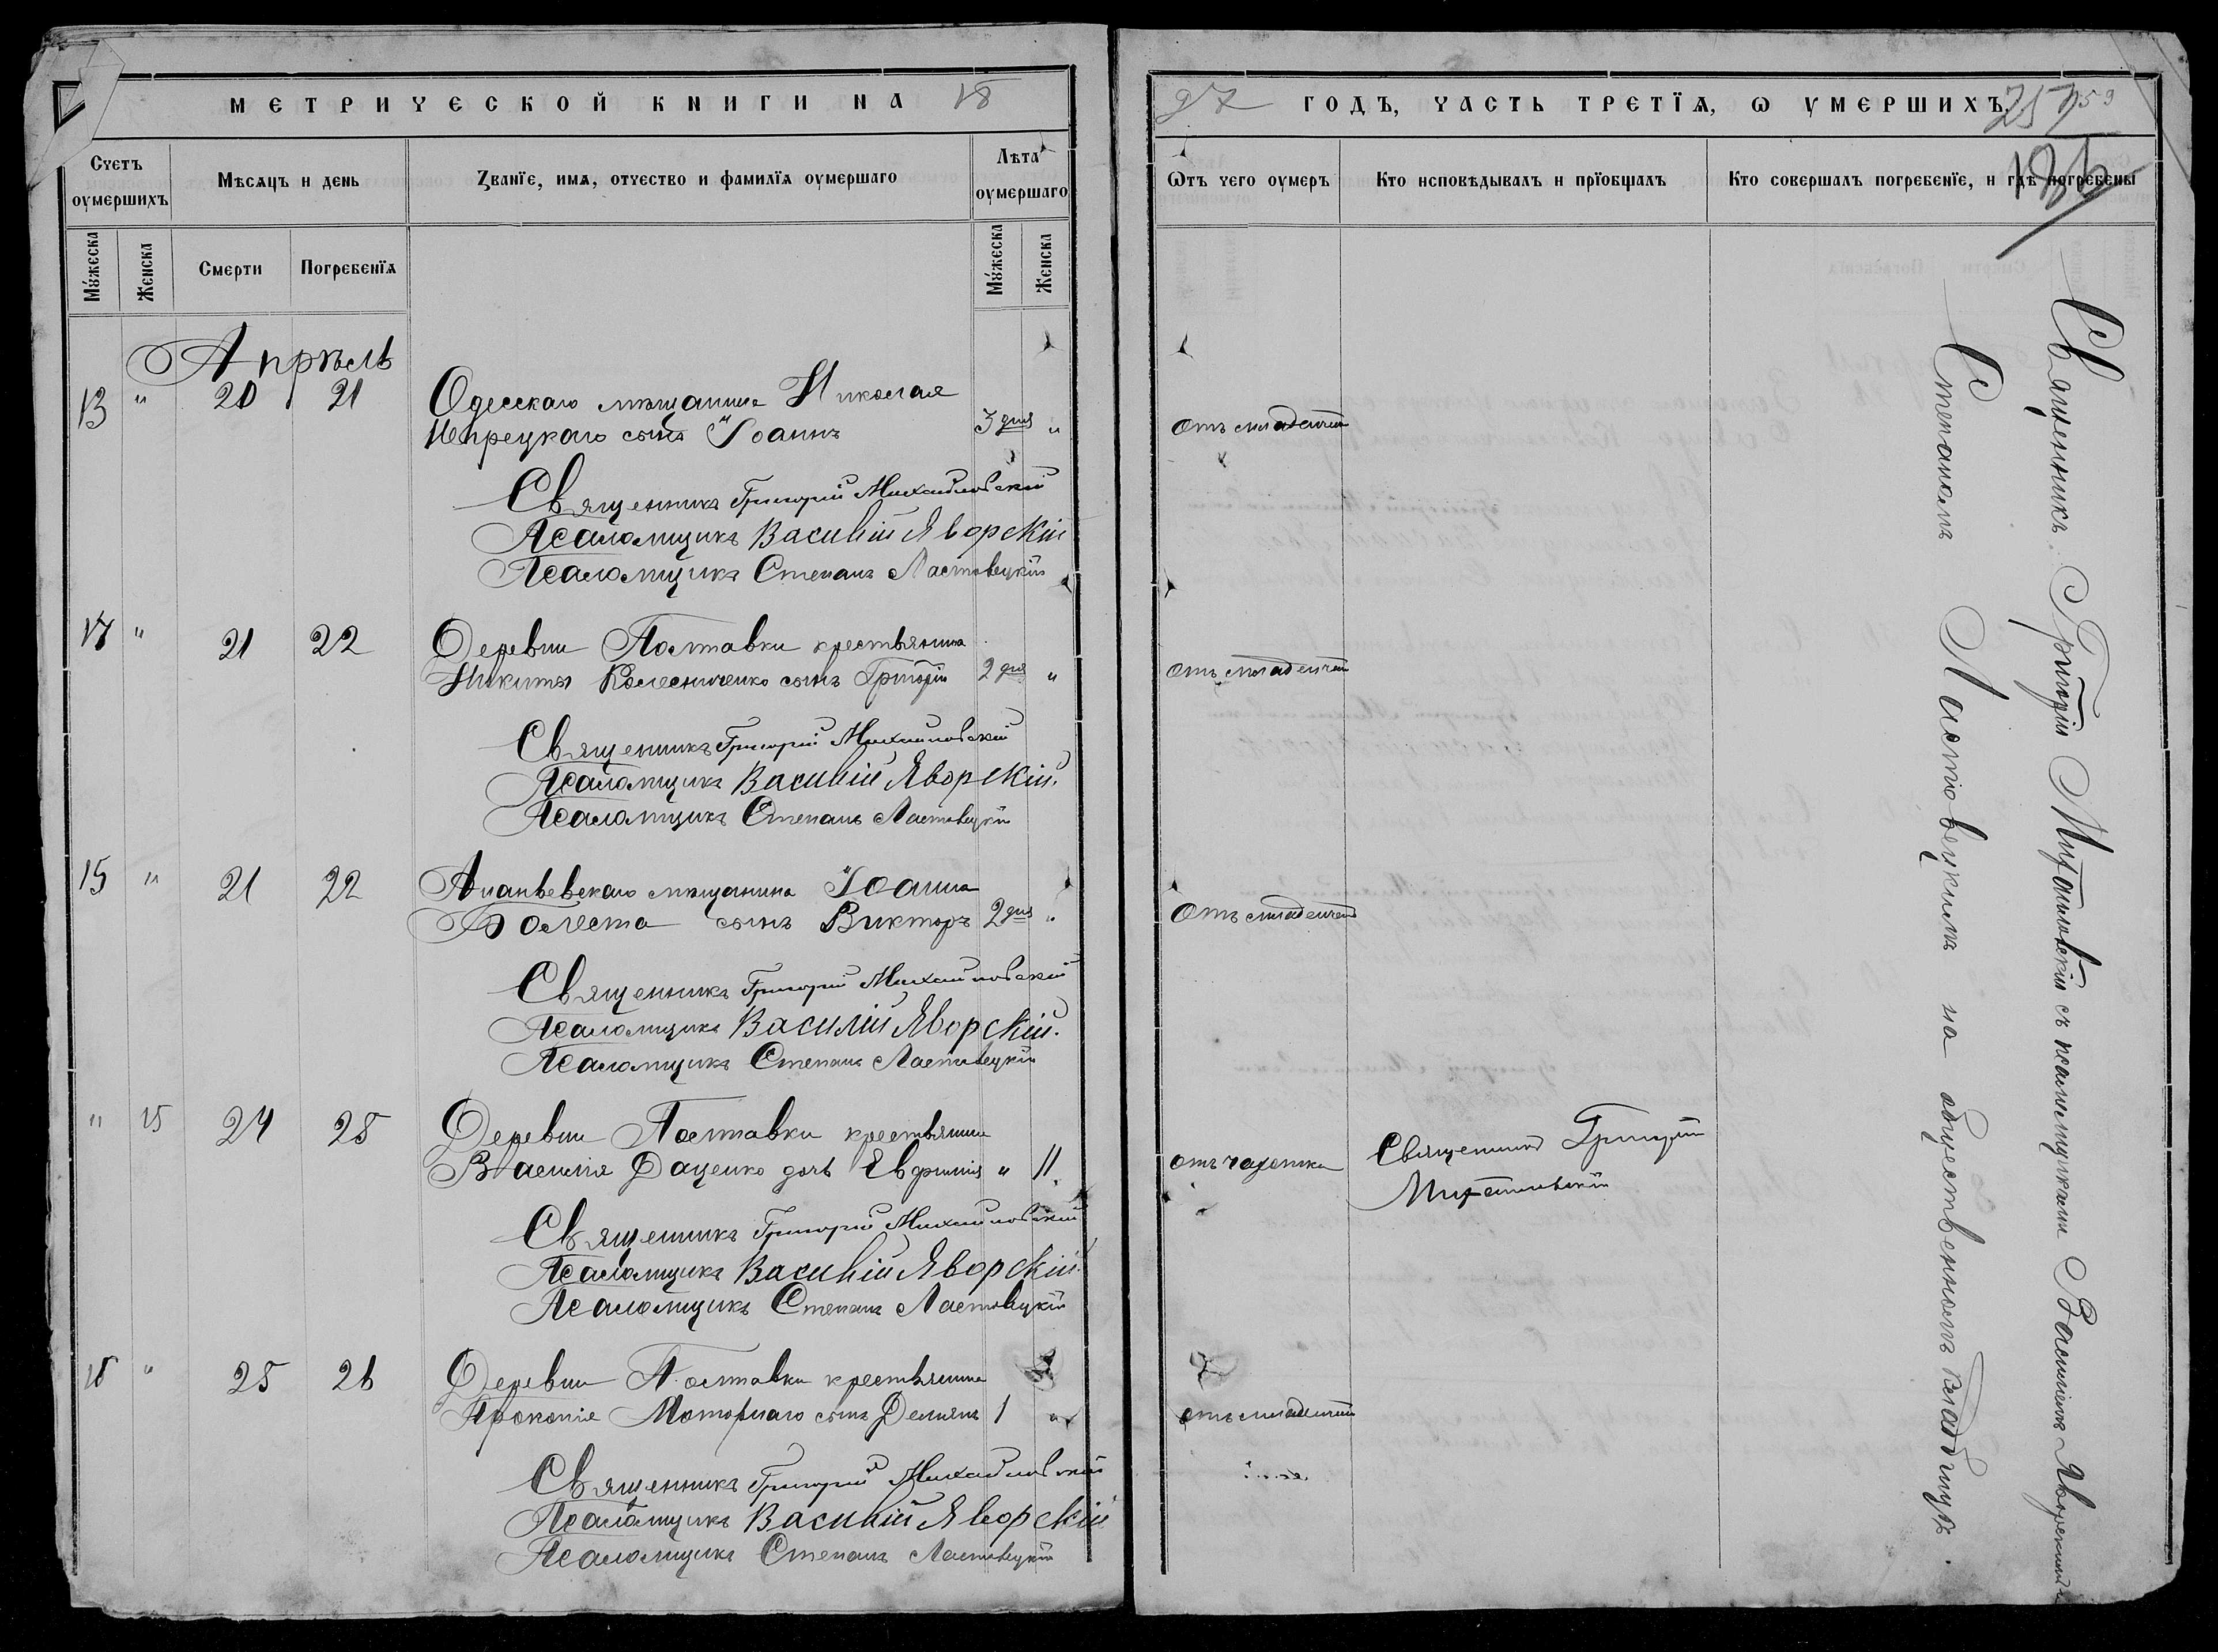 МЕТРИЧЕСКОЙ КНИГИ НА 18
97 ГОДЪ, ЧАСТЬ ТРЕТІѦ, Ѡ УМЕРШИХЪ.
257
159
Счетъ оумершихъ
Мѣсѧцъ и день
Званїе, имѧ, отчество и фамилїѧ оумершаго
Лѣта оумершаго
Ѿтъ чего оумеръ
Кто исповѣдывалъ и прїобщалъ
Кто совершалъ погребенїе, и гдѣ погребены
Мужеска
Женска
Смерти
Погребенїѧ
Мужеска
Женска
Апрѣль
13 " 20 21 Одесскаго мѣщанина Николая
сынъ Іоаннъ 3 дня " отъ младенчес
Священникъ Григорій Михайловскій
Псаломщикъ Василій Яворскій
Псаломщикъ Степанъ Ластовецкій
14 " 21 22 Деревни Полтавки крестьянина
Никиты Колесниченко сынъ Григорій 2 дня " отъ младенчес
Священникъ Григорій Михайловскій
Псаломщикъ Василій Яворскій.
Псаломщикъ Степанъ Ластовецкій
15 " 21 22 Ананьевскаго мѣщанина Іоанна
сынъ Викторъ 2 дня " Отъ младенчес
Священникъ Григорій Михайловскій
Псаломщикъ Василій Яворскій.
Псаломщикъ Степанъ Ластовецкій
" 15 24 25 Деревни Полтавки крестьянина
Василія Даценко дочь Евфимія " 11. отъ чахотки Священникъ Григорій
Михайловскій
Священникъ Григорій Михайловскій
Псаломщикъ Василій Яворскій.
Псаломщикъ Степанъ Ластовецкій
16 " 25 26 Деревни Полтавки крестьянина
Прокопія Моторнаго сынъ Деміянъ 1 " отъ младенчес
Священникъ Григорій Михайловскій
Псаломщикъ Василій Яворскій
Псаломщикъ Степанъ Ластовецкій
Священникъ Григорій Михайловскій съ псаломщиками Василіемъ Яворскимъ и
Степаномъ Ластовецкимъ на общественномъ кладбищѣ.